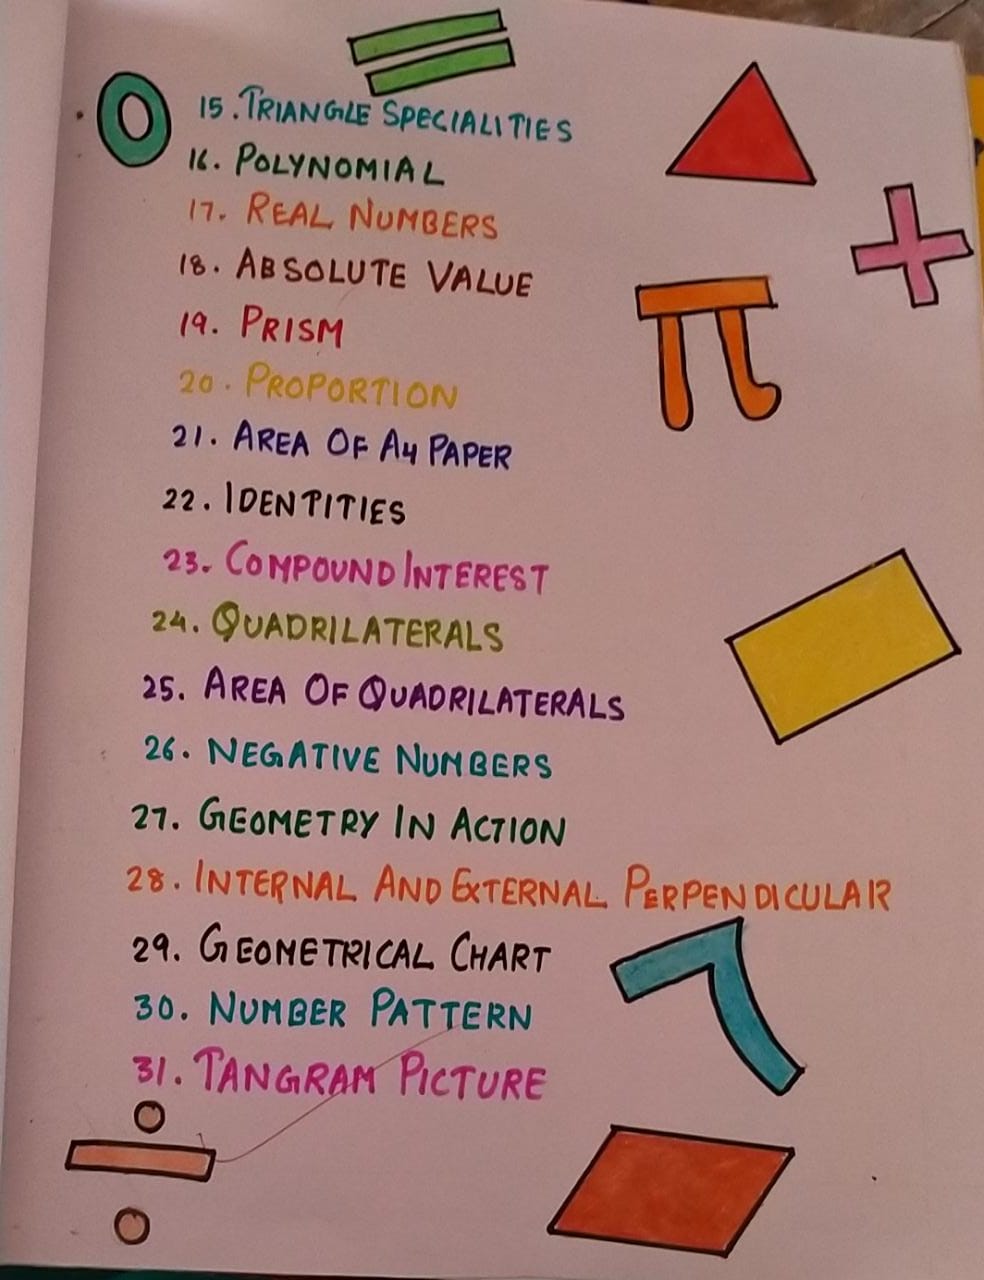 15. TRIANGLE SPECIALITIES
16. POLYNOMIAL
17. REAL NUMBERS
18. ABSOLUTE VALUE
19. PRISM
20. PROPORTION
21. AREA OF A4 PAPER
22. IDENTITIES
23. COMPOUND INTEREST
24. QUADRILATERALS
25. AREA OF QUADRILATERALS
26. NEGATIVE NUMBERS
27. GEOMETRY IN ACTION
28. INTERNAL AND EXTERNAL PERPENDICULAR
29. GEOMETRICAL CHART
30. NUMBER PATTERN
31. TANGRAM PICTURE